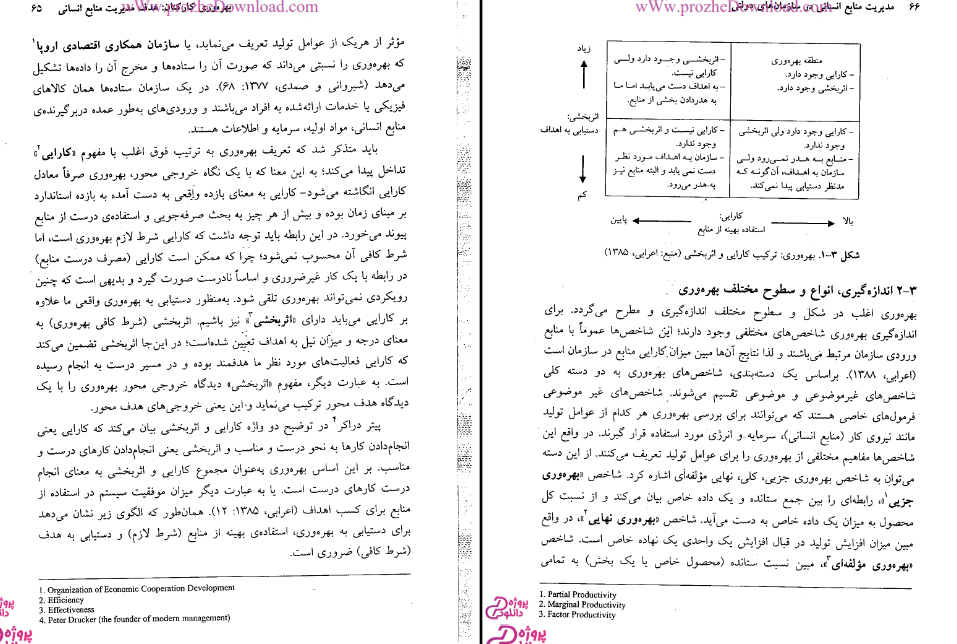 بهره‌وری کارکنان: هدف مدیریت منابع انسانی ۶۵
www.prozheDownload.com
مؤثر از هریک از عوامل تولید تعریف می‌نماید، یا سازمان همکاری اقتصادی اروپا۱
که بهره‌وری را نسبتی می‌داند که صورت آن را ستاده‌ها و مخرج آن را داده‌ها تشکیل
می‌دهد (شیروانی و صمدی، ۱۳۷۷: ۶۸). در یک سازمان ستاده‌ها همان کالاهای
فیزیکی یا خدمات ارائه‌شده به افراد می‌باشند و ورودی‌های به‌طور عمده دربرگیرنده‌ی
منابع انسانی، مواد اولیه، سرمایه و اطلاعات هستند.
باید متذکر شد که تعریف بهره‌وری به ترتیب فوق اغلب با مفهوم «کارایی۲»
تداخل پیدا می‌کند؛ به این معنا که با یک نگاه خروجی محور، بهره‌وری صرفاً معادل
کارایی انگاشته می‌شود- کارایی به معنای بازده واقعی به دست آمده به بازده استاندارد
بر مبنای زمان بوده و بیش از هر چیز به بحث صرفه‌جویی و استفاده‌ی درست از منابع
پیوند می‌خورد. در این رابطه باید توجه داشت که کارایی شرط لازم بهره‌وری است، اما
شرط کافی آن محسوب نمی‌شود؛ چرا که ممکن است کارایی (مصرف درست منابع)
در رابطه با یک کار غیرضروری و اساساً نادرست صورت گیرد و بدیهی است که چنین
رویکردی نمی‌تواند بهره‌وری تلقی شود. به‌منظور دستیابی به بهره‌وری واقعی ما علاوه
بر کارایی می‌باید دارای «اثربخشی۳» نیز باشیم. اثربخشی (شرط کافی بهره‌وری) به
معنای درجه و میزان نیل به اهداف تعیین شده‌است؛ در این‌جا اثربخشی تضمین می‌کند
که کارایی فعالیت‌های مورد نظر ما هدفمند بوده و در مسیر درست به انجام رسیده
است. به عبارت دیگر، مفهوم «اثربخشی» دیدگاه خروجی محور بهره‌وری را با یک
دیدگاه هدف محور ترکیب می‌نماید و این یعنی خروجی‌های هدف محور.
پیتر دراکر۴ در توضیح دو واژه کارایی و اثربخشی بیان می‌کند که کارایی یعنی
انجام‌دادن کارها به نحو درست و مناسب و اثربخشی یعنی انجام‌دادن کارهای درست و
مناسب. بر این اساس بهره‌وری به‌عنوان مجموع کارایی و اثربخشی به معنای انجام
درست کارهای درست است. یا به عبارت دیگر میزان موفقیت سیستم در استفاده از
منابع برای کسب اهداف (اعرابی، ۱۳۸۵: ۱۲). همان‌طور که الگوی زیر نشان می‌دهد
برای دستیابی به بهره‌وری، استفاده‌ی بهینه از منابع (شرط لازم) و دستیابی به هدف
(شرط کافی) ضروری است.
1. Organization of Economic Cooperation Development
2. Efficiency
3. Effectiveness
4. Peter Drucker (the founder of modern management)
۶۶ مدیریت منابع انسانی در سازمان‌های دولتی
www.prozheDownload.com
زیاد
اثربخشی:
دستیابی به اهداف
کم
منطقه بهره‌وری
- کارایی وجود دارد.
- اثربخشی وجود دارد.
- اثربخشی وجود دارد ولی
کارایی نیست.
- به اهداف دست می‌یابد اما ما
به هدردادن بخشی از منابع.
- کارایی وجود دارد ولی اثربخشی
وجود ندارد.
- منابع به هدر نمی‌رود ولی
سازمان به اهداف، آن‌گونه که
مدنظر دستیابی پیدا نمی‌کند.
- کارایی نیست و اثربخشی هم
وجود ندارد.
- سازمان به اهداف مورد نظر
دست نمی یابد و البته منابع نیز
به‌هدر می‌رود.
بالا کارایی: پایین
استفاده بهینه از منابع
شکل ۳-۱. بهره‌وری: ترکیب کارایی و اثربخشی (منبع: اعرابی، ۱۳۸۵)
۳-۲ اندازه‌گیری، انواع و سطوح مختلف بهره‌وری
بهره‌وری اغلب در شکل و سطوح مختلف اندازه‌گیری و مطرح می‌گردد. برای
اندازه‌گیری بهره‌وری شاخص‌های مختلفی وجود دارند؛ این شاخص‌ها عموماً با منابع
ورودی سازمان مرتبط می‌باشند و لذا نتایج آن‌ها مبین میزان کارایی منابع در سازمان است
(اعرابی، ۱۳۸۸). براساس یک دسته‌بندی، شاخص‌های بهره‌وری به دو دسته کلی
شاخص‌های غیرموضوعی و موضوعی تقسیم می‌شوند. شاخص‌های غیر موضوعی
فرمول‌های خاصی هستند که می‌توانند برای بررسی بهره‌وری هر کدام از عوامل تولید
مانند نیروی کار (منابع انسانی)، سرمایه و انرژی مورد استفاده قرار گیرند. در واقع این
شاخص‌ها مفاهیم مختلفی از بهره‌وری را برای عوامل تولید تعریف می‌کنند. از این دسته
می‌توان به شاخص بهره‌وری جزیی، کلی، نهایی مؤلفه‌ای اشاره کرد. شاخص «بهره‌وری
جزیی۱»، رابطه‌ای را بین جمع ستانده و یک داده خاص بیان می‌کند و از نسبت کل
محصول به میزان یک داده خاص به دست می‌آید. شاخص «بهره‌وری نهایی۲»، در واقع
مبین میزان افزایش تولید در قبال افزایش یک واحدی یک نهاده خاص است. شاخص
«بهره‌وری مؤلفه‌ای۳»، مبین نسبت ستانده (محصول خاص یا یک بخش) به تمامی
1. Partial Productivity
2. Marginal Productivity
3. Factor Productivity
پروژه
دانلود
پروژه